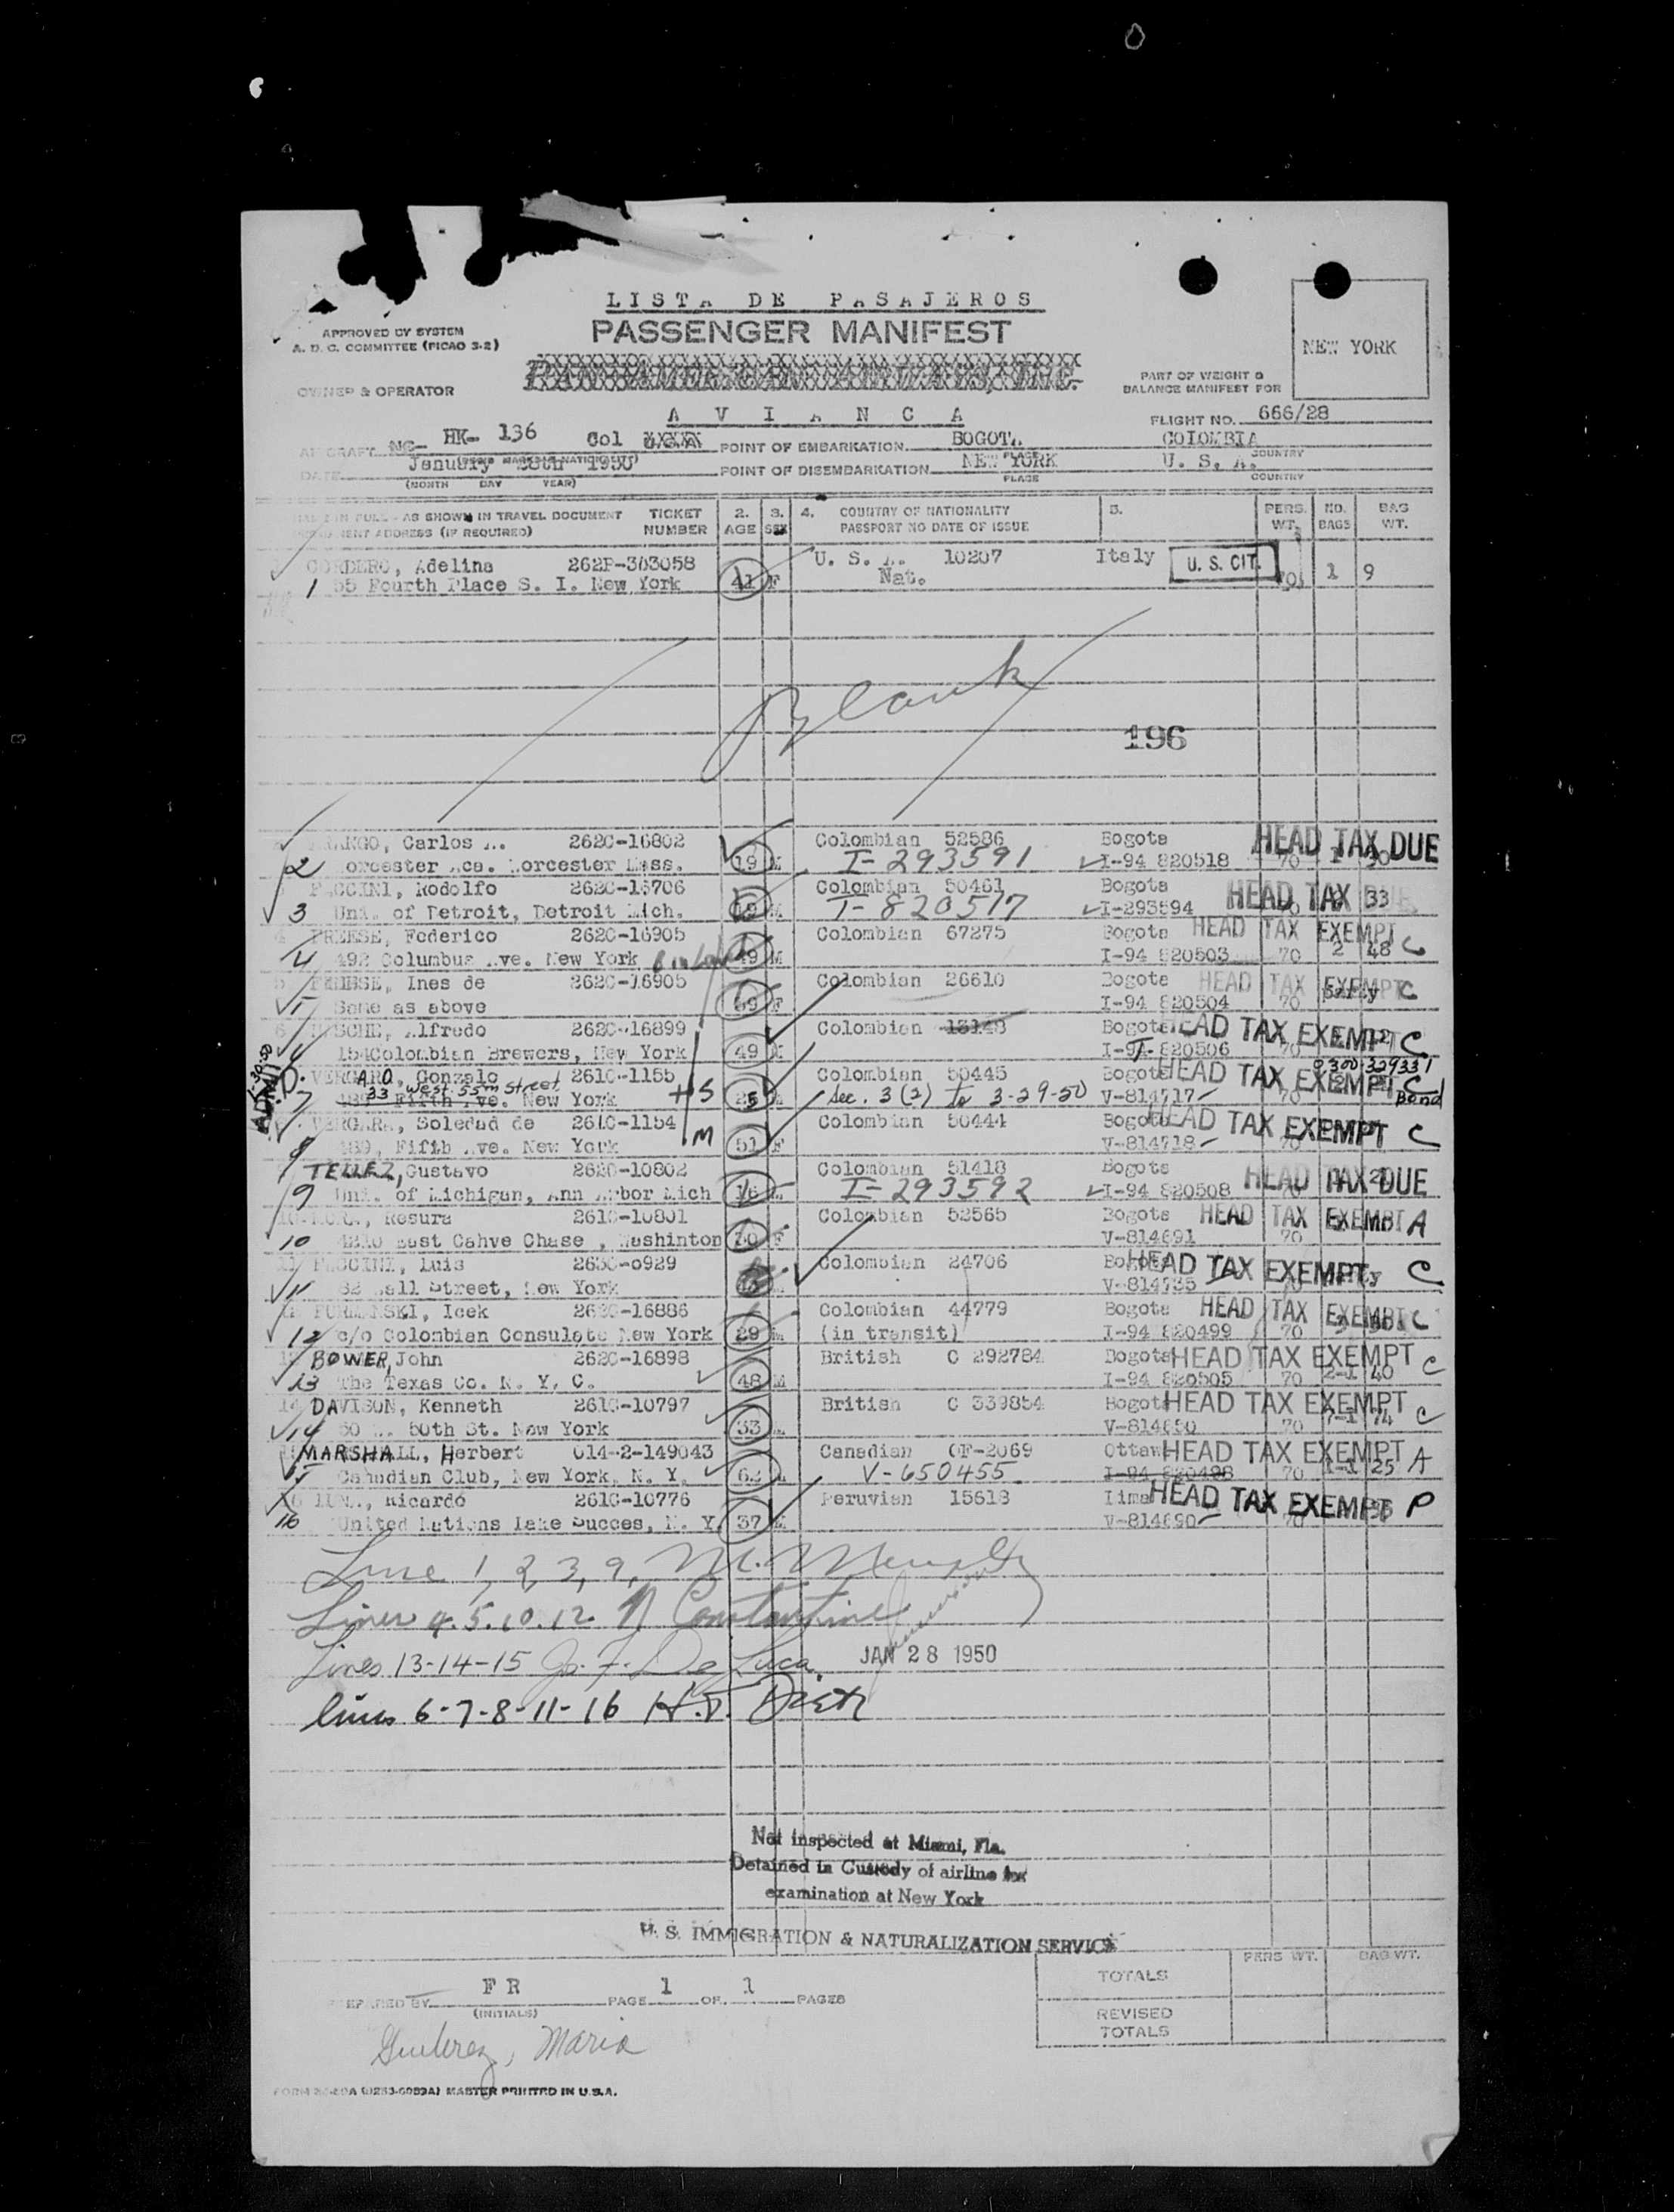 LISTA DE PASAJEROS
PASSENGER MANIFEST
APPROVED BY SYSTEM
A. D. C. COMMITTEE (FICAO 3-2)
NEW YORK
OWNER & OPERATOR
PART OF WEIGHT &
BALANCE MANIFEST FOR
A V I A N C A
FLIGHT NO. 666/28
HK- 136 Col POINT OF EMBARKATION BOGOTA COLOMBIA
PLACE COUNTRY
DATE January 28th 1950 POINT OF DISEMBARKATION NEW YORK U. S. A.
(MONTH DAY YEAR) PLACE COUNTRY
IN FULL - AS SHOWN IN TRAVEL DOCUMENT TICKET 2. 3. 4. COUNTRY OF NATIONALITY 5. PERS. NO. BAG
ADDRESS (IF REQUIRED) NUMBER AGE SEX PASSPORT NO DATE OF ISSUE WT. BAGS WT.
CORDERO, Adelina 262P-303058 U. S. A. 10207 Italy U. S. CIT.
1 55 Fourth Place S. I. New York 41 F Nat. 1 9
Blank
196
Carlos A. 2620-16802 Colombian 52586 Bogota HEAD TAX DUE
2 Worcester Aca. Worcester Mass. 19 M I-293591 I-94 820518 70
PACCINI, Rodolfo 2620-16706 Colombian 50461 Bogota HEAD TAX
3 Uni. of Detroit, Detroit Mich. M I-820517 I-293594 33
FREESE, Federico 2620-16905 Colombian 67275 Bogota HEAD TAX EXEMPT
4 492 Columbus Ave. New York 49 M I-94 820503 70 2 48 C
Ines de 2620-16905 Colombian 26610 Bogota HEAD TAX EXEMPT C
Same as above 39 F I-94 820504 70
Alfredo 2620-16899 Colombian Bogota HEAD TAX EXEMPT C
154 Colombian Brewers, New York 49 M I-94 820506
VERGARA, Gonzalo 2610-1155 Colombian 50445 Bogota HEAD TAX EXEMPT C 0300 329331
33 West 55th Street
7 Fifth Ave. New York HS Sec. 3 (2) to 3-29-50 V-814717 Bond
ADMITTED 1-30-50
VERGARA, Soledad de 2610-1154 Colombian 50444 Bogota HEAD TAX EXEMPT C
8 489, Fifth Ave. New York M 51 F V-814718
TELLEZ, Gustavo 2620-10802 Colombian 51418 Bogota HEAD TAX DUE
9 Uni. of Michigan, Ann Arbor Mich 16 M I-293592 I-94 820508
Rosura 2610-10801 Colombian 52565 Bogota HEAD TAX EXEMPT A
10 East Cahve Chase, Washinton F V-814691 70
PACCINI, Luis Colombian 24706 Bogota HEAD TAX EXEMPT C
11 82 Wall Street, New York V-814735
FURMANSKI, Icek 2620-16886 Colombian 44779 Bogota HEAD TAX EXEMPT C
12 c/o Colombian Consulate New York 29 M (in transit) I-94 820499 70
BOWER, John 2620-16898 British C 292784 Bogota HEAD TAX EXEMPT C
13 The Texas Co. N. Y. C. 48 M I-94 820505 70 2-1 40
DAVISON, Kenneth 2610-10797 British C 339854 Bogota HEAD TAX EXEMPT C
14 50th St. New York 33 M 70 74
MARSHALL, Herbert 014-2-149043 Canadian OF-2069 Ottawa HEAD TAX EXEMPT A
Canadian Club, New York, N. Y. V-650455 I-94 820498 70 1-1 25
LUNA, Ricardo 2610-10776 Peruvian 15618 Lima HEAD TAX EXEMPT P
16 United Nations Lake Succes, N. Y. 37 M V-814690 70
Line 1, 2, 3, 9, M.
Lines 4.5.10.12 N Constantine
Lines 13-14-15 Jo. F. De Luca.
JAN 28 1950
lines 6-7-8-11-16 H.F.
Not inspected at Miami, Fla.
Detained in Custody of airline for
examination at New York
U. S. IMMIGRATION & NATURALIZATION SERVICE
PERS WT. BAG WT.
TOTALS
PREPARED BY FR PAGE 1 OF 1 PAGES
(INITIALS)
REVISED
TOTALS
Maria
MASTER PRINTED IN U.S.A.